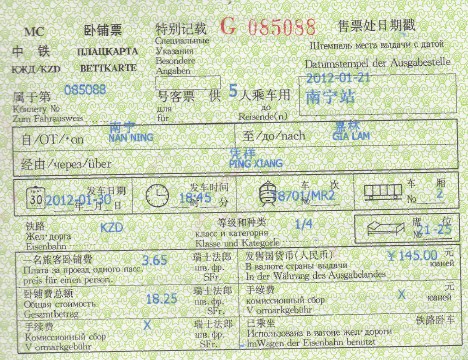 MC 卧铺票 特别记载 G 085088 售票处日期戳
中铁 ПЛАЦКАРТА Специальные Штемпель места выдачи с датой
КЖД/KZD BETTKARTE Указания Besondere Angaben Datumstempel der Ausgabestelle
2012-01-21
属于第 085088 号客票 供 5 人乘车用 南宁站
К билету № для до
Zum Fahrausweis für Reisende(n)
自/ОТ/·on 南宁 NAN NING 至/до/nach 嘉林 GIA LAM
经由/через/über 凭祥 PING XIANG
30 发车日期 2012-01-30 年 月 日 发车时间 18:45 时 分 车次 T8701/MR2 车厢 2
铁路 KZD 等级和种类 1/4 席位 21-25
Жел дорога класс и категория
Eisenbahn Klasse und Kategorie
一名旅客卧铺费 3.65 瑞士法郎 发售国货币(人民币) ￥145.00 元
Плата за проезд одного пасс. шв. фр. В валюте страны выдачи юаней
preis für einen person. SFr. In der Währung des Ausgabelandes
卧铺费总额 18.25 瑞士法郎 手续费 X 元
Общая стоимость шв. фр. комиссионный сбор юаней
Gesamtbetrag SFr. Vormarkgebühr
手续费 X 瑞士法郎 已乘坐 铁路卧车
Комиссионный сбор шв. фр. Использована в вагоне жел дороги
Vormarkgebühr SFr. im Wagen der Eisenbahn benutzt